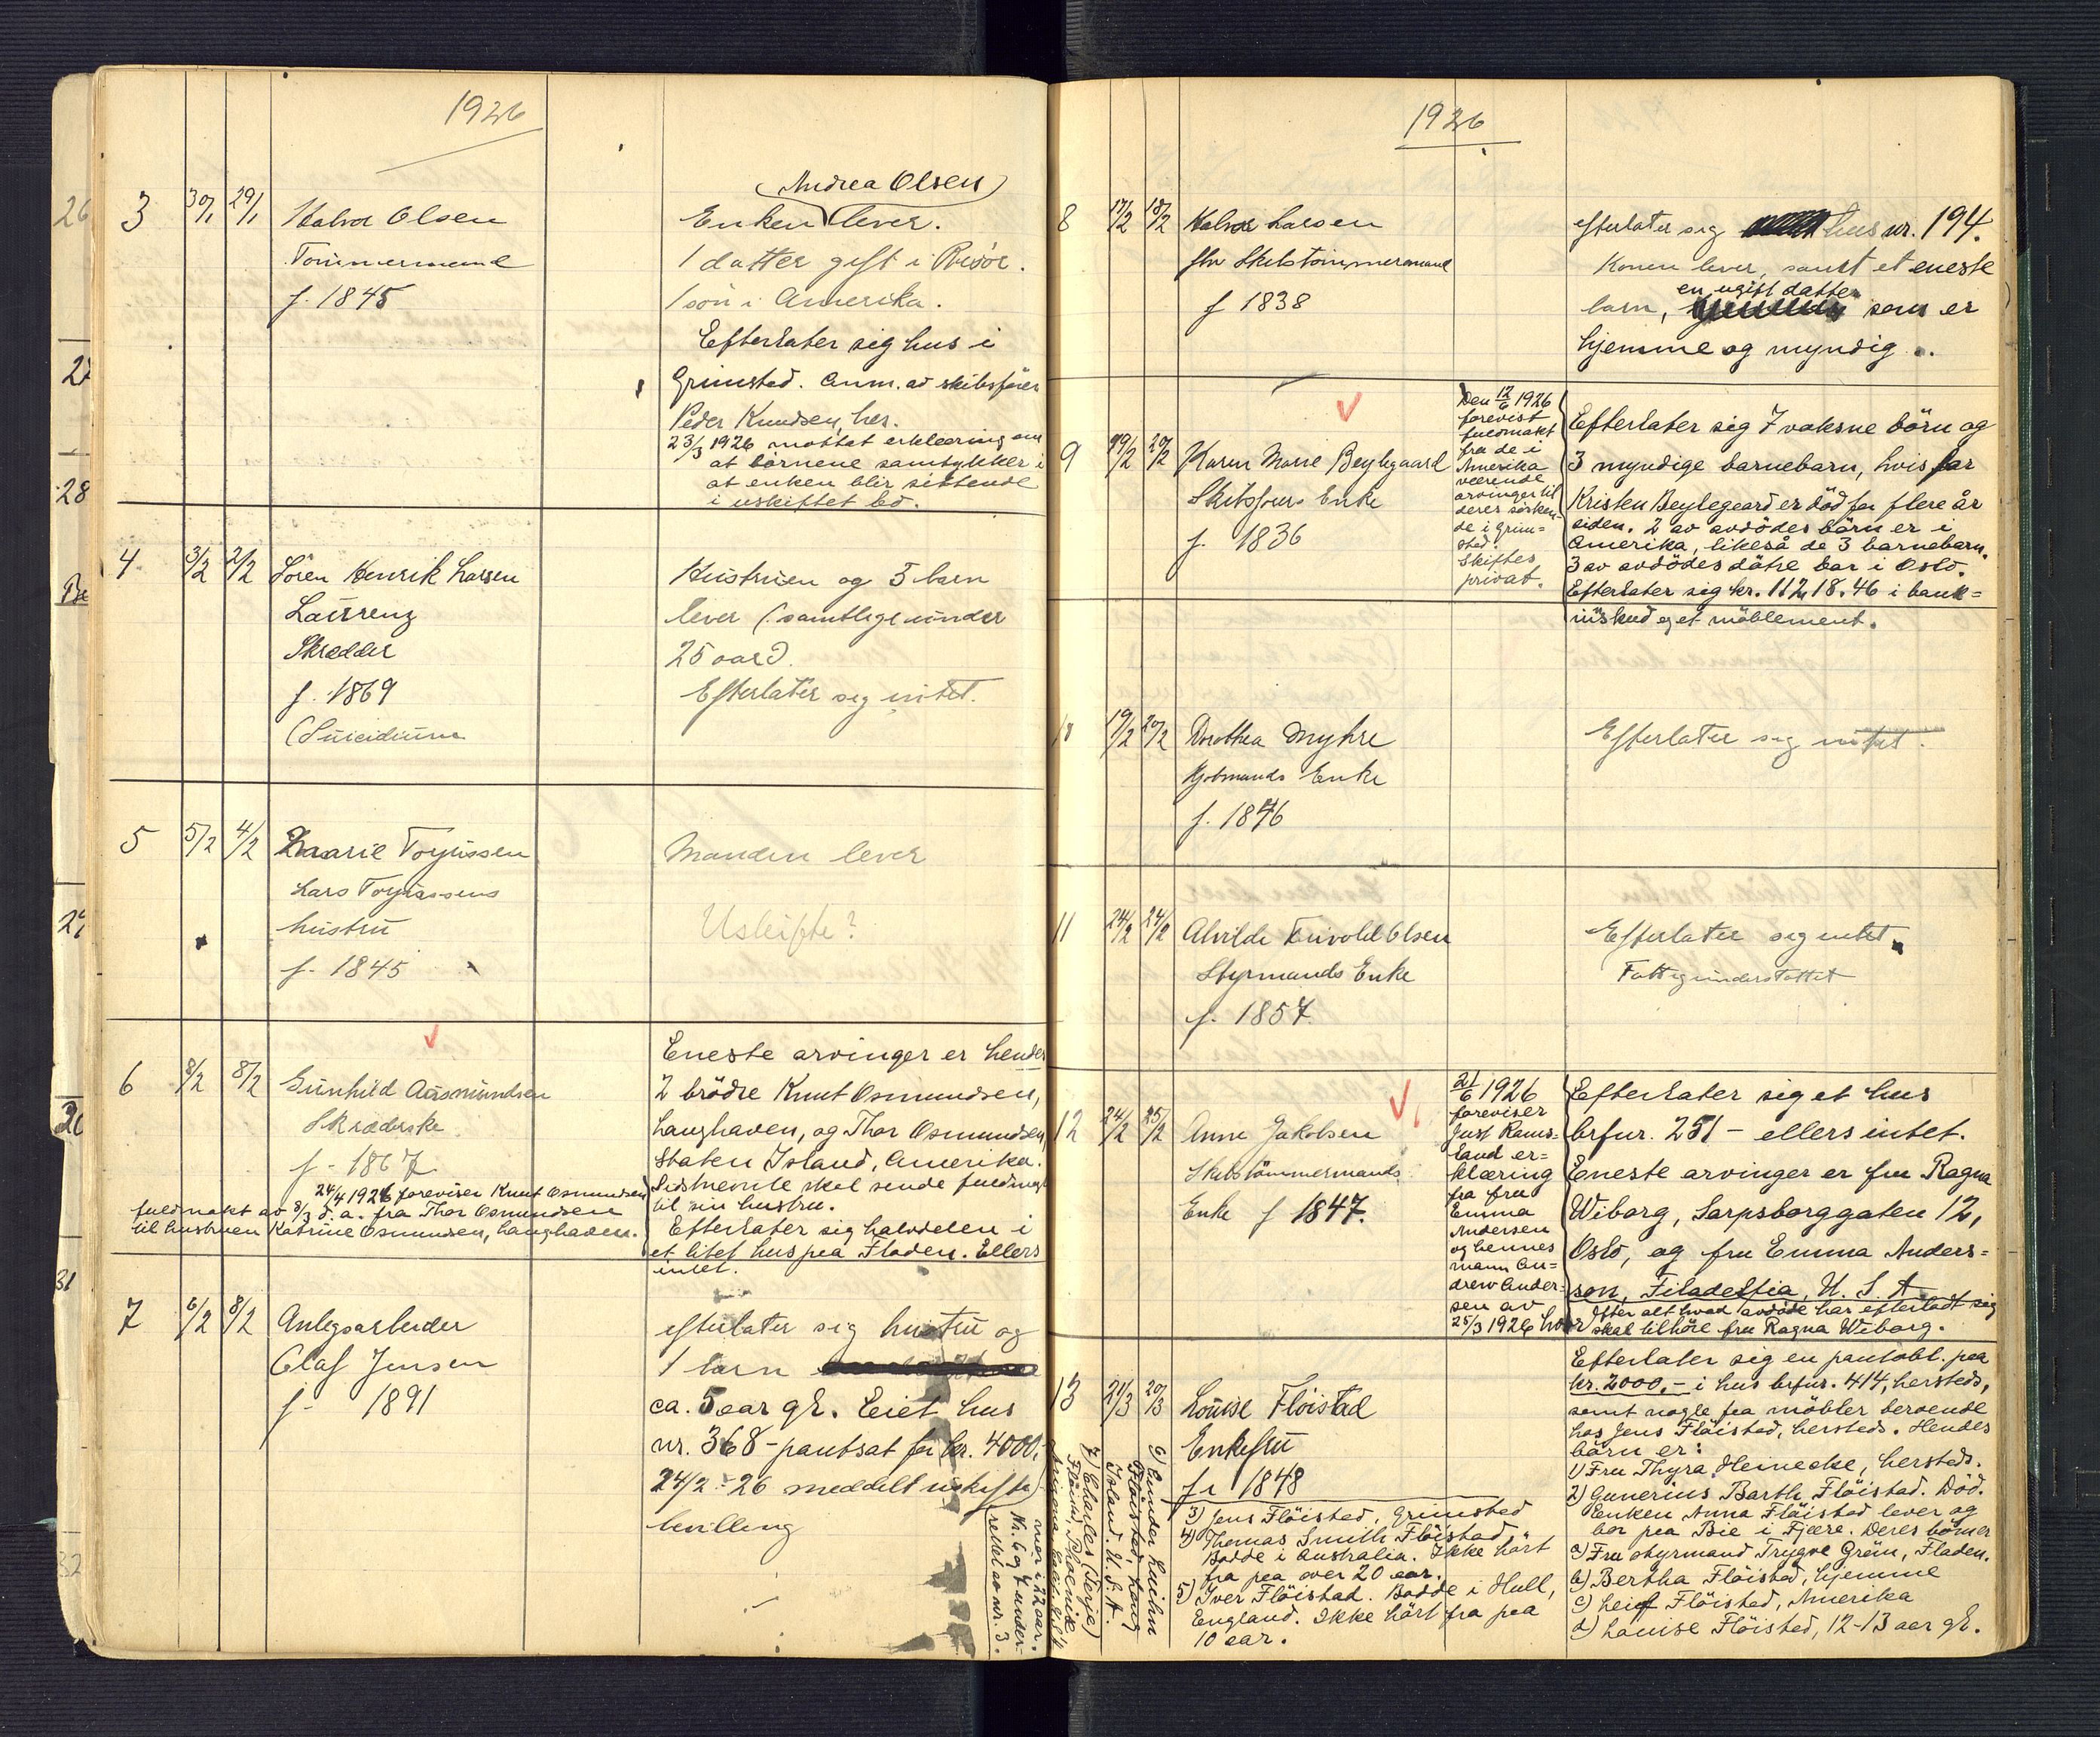 1926
3 30/1 29/1
Halvor Olsen
Tømmermand
f. 1845
(Andrea Olsen)
Enken lever.
1 datter gift i Risör.
1 sön i Amerika.
Efterlater sig hus i
Grimstad. Anm. av skibsförer
Peder Knudsen, her.
23/3 1926 mottat erklæring om
at börnene samtykker i
at enken blir sittende
i uskiftet bo.
4. 3/2 2/2
Sören Henrik Larsen
Laurenz
Skrædder
f. 1869
(Suicidium
Hustruen og 5 barn
lever (samtlige under
25 aar).
Efterlater sig intet.
5 5/2 4/2
Maarie
Lars
hustru
f. 1845
Manden lever
Uskifte?
6 8/2 8/2
Gunhild Aasmundsen
Skræderske
f. 1867
24/4 1926 foreviser Knut Osmundsen
fuldmakt av 8/3 d. a. fra Thor Osmundsen
til hustruen Katrine Osmundsen, Langhaven.
Eneste arvinger er hendes
2 brödre Knut Osmundsen,
Langhaven, og Thor Osmundsen
Staten Island, Amerika.
Sidstnevnte skal sende fuldmagt
til sin hustru.
Efterlater sig halvdelen i
et litet hus paa Fladen. Ellers
intet.
7 6/2 8/2
Anlegsarbeider
Olaf Jensen
f. 1891
efterlater sig hustru og
1 barn
ca. 5 aar gl. Eiet hus
nr. 368 - pantsat for kr. 4000.
24/2 - 26 meddelt uskifte
bevilling
Nr. 6 og 7 under-
rettet av nr. 3.
1926
8 17/2 18/2
Halvor Larsen
fhv Skibstömmermand
f 1838
efterlater sig hus nr. 194.
Konen lever, samt et eneste
en ugift datter
barn, som er
hjemme og myndig.
9 19/2 20/2
Karen Marie Beylegaard
Skibsførers Enke
f. 1836
Den 12/6 1926
forevist
fuldmakt
fra de i
Amerika
værende
arvinger til
deres sösken-
de i Grim-
stad.
Skiftes
privat.
Efterlater sig 7 voksne börn og
3 myndige barnebarn, hvis far
Kristen Beylegaard er död for flere år
siden. 2 av avdödes börn er i
Amerika, likeså de 3 barnebarn.
3 av avdödes dötre bor i Oslo.
Efterlater sig kr. 11218.46 i bank-
inskud og et möblement.
10 19/2 20/2
Dorothea Myhre
Kjøbmands Enke
f. 1846
Efterlater sig intet.
11 24/2 24/2
Alvilde Enivold Olsen
Styrmands Enke
f. 1857
Efterlater sig intet.
Fattigunderstøttet
12 24/2 25/2
Anne Jakobsen
Skibstömmermands
Enke f 1847.
21/6 1926
foreviser
Just Rams-
land er-
klæring
fra fru
Emma
Andersen
og hennes
mann An-
drew Ander-
sen av
25/3 1926 hvor
Efterlater sig et hus
brfnr. 251 - ellers intet.
Eneste arvinger er fru Ragna
Wiborg, Sarpsborggaten 12,
Oslo, og fru Emma Anders-
son, Filadelfia, U. S. A.
efter alt hvad avdöde har efterladt sig
skal tilhöre fru Ragna Wiborg.
13 21/3 20/3
Louise Fløistad
Enkefru
f. 1848
Efterlater sig en pantobl. paa
kr. 2000,- i hus brfnr. 414, hersteds,
samt nogle faa möbler beroende
hos Jens Flöistad, hersteds. Hendes
börn er:
1) Fru Thyra Heinecke, hersteds.
2) Gunerius Barth Flöistad. Död.
Enken Anna Flöistad lever og
bor paa Bie i Fjære. Deres börn er
a) Fru styrmand Trygve Gröm, Fladen.
b) Bertha Flöistad, hjemme
c) Leif Flöistad, Amerika
d) Louise Flöistad, 12-13 aar gl.
3) Jens Flöistad, Grimstad
4) Thomas Smith Flöistad
Bodde i Australia. Ikke hört
fra paa over 20 aar.
5) Iver Flöistad. Bodde i Hull,
England. Ikke hört fra paa
10 aar.
6) Einder
Flöistad, Long
Island. U. S. A.
7) Charles (Terje)
Flöistad, Phoenix
Arizona.
mer i 22 aar.